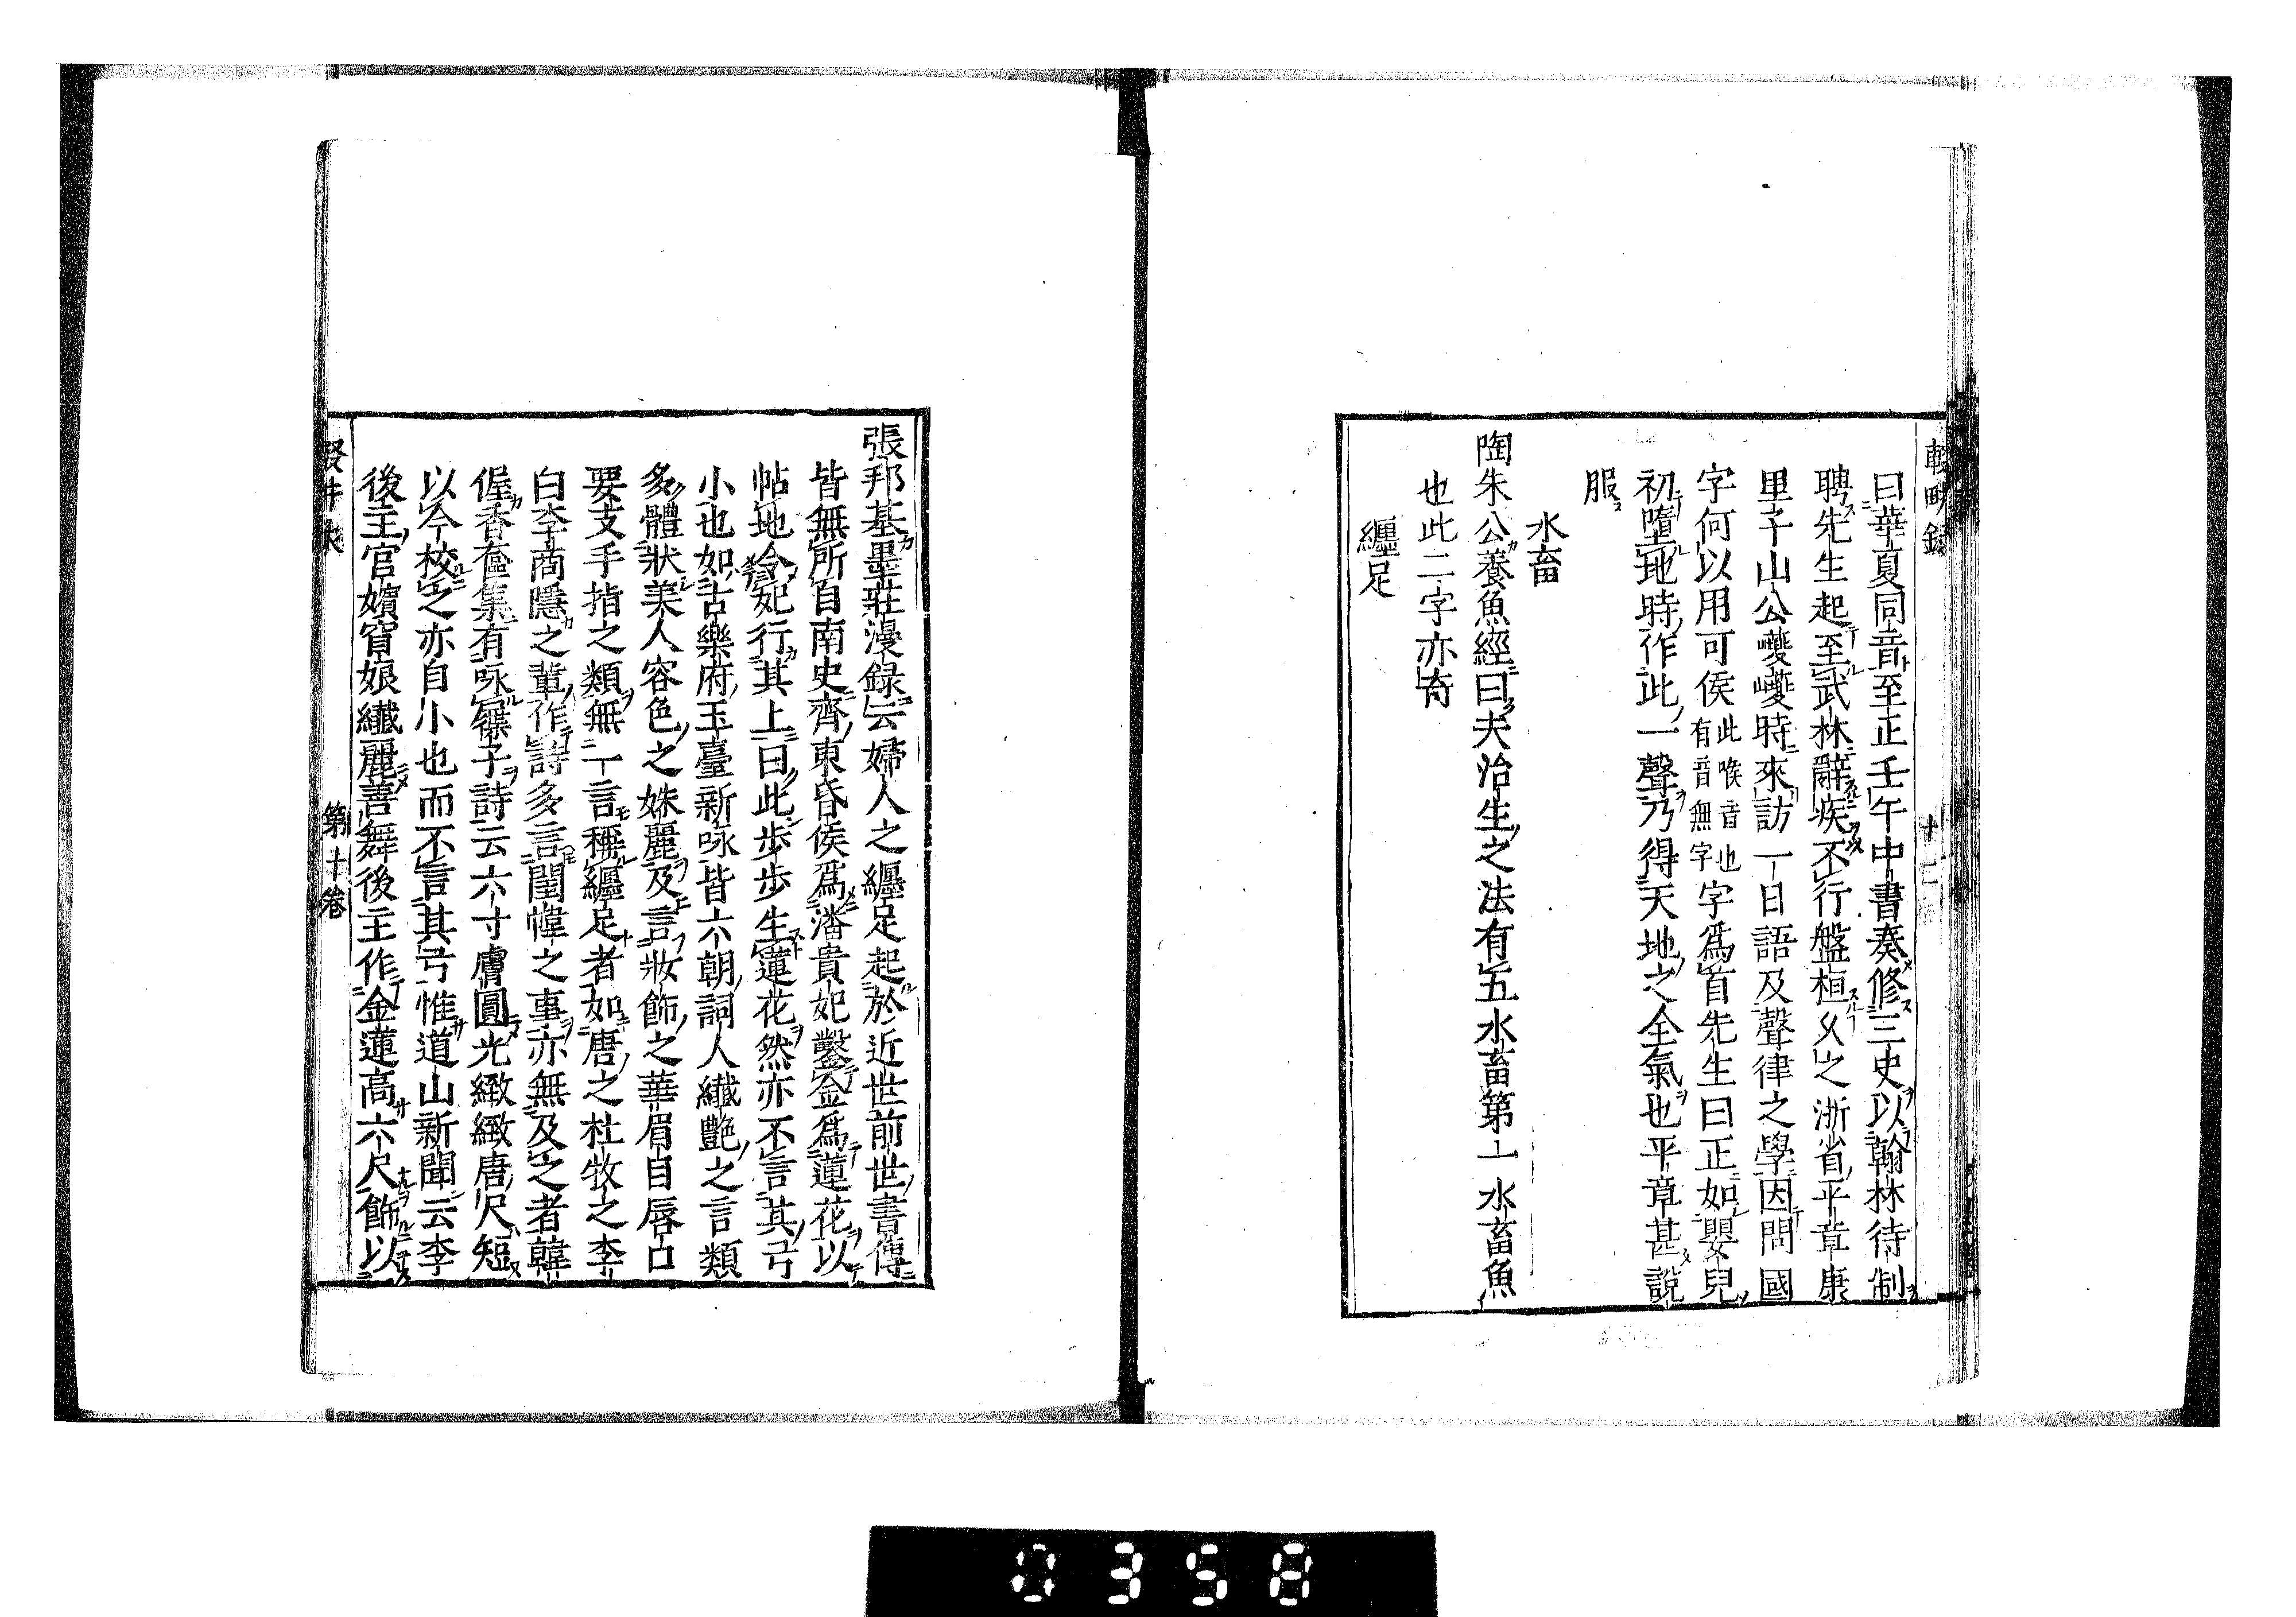 輟畊錄
十二
曰華夏同音至正壬午中書奏修三史以翰林待制
聘先生起至武林辭疾不行盤桓久之浙省平章康
里子山公巙巙時來訪一日語及聲律之學因問國
字何以用可侯此喉音也有音無字字爲首先生曰正如嬰兒
初墮地時作此一聲乃得天地之全氣也平章甚說
服
水畜
陶朱公養魚經曰夫治生之法有五水畜第一水畜魚
也此二字亦奇
纏足
張邦基墨莊漫録云婦人之纏足起於近世前世書傳
皆無所自南史齊東昏侯爲潘貴妃鑿金爲蓮花以
帖地令妃行其上曰此步步生蓮花然亦不言其弓
小也如古樂府玉臺新咏皆六朝詞人纖艷之言類
多體狀美人容色之姝麗及言妝飾之華眉目唇口
要支手指之類無一言稱纏足者如唐之杜牧之李
白李商隱之輩作詩多言閨幃之事亦無及之者韓
偓香奩集有咏屧子詩云六寸膚圓光緻緻唐尺短
以今校之亦自小也而不言其弓惟道山新聞云李
後主宮嬪窅娘纖麗善舞後主作金蓮高六尺飾以
第十卷
0358